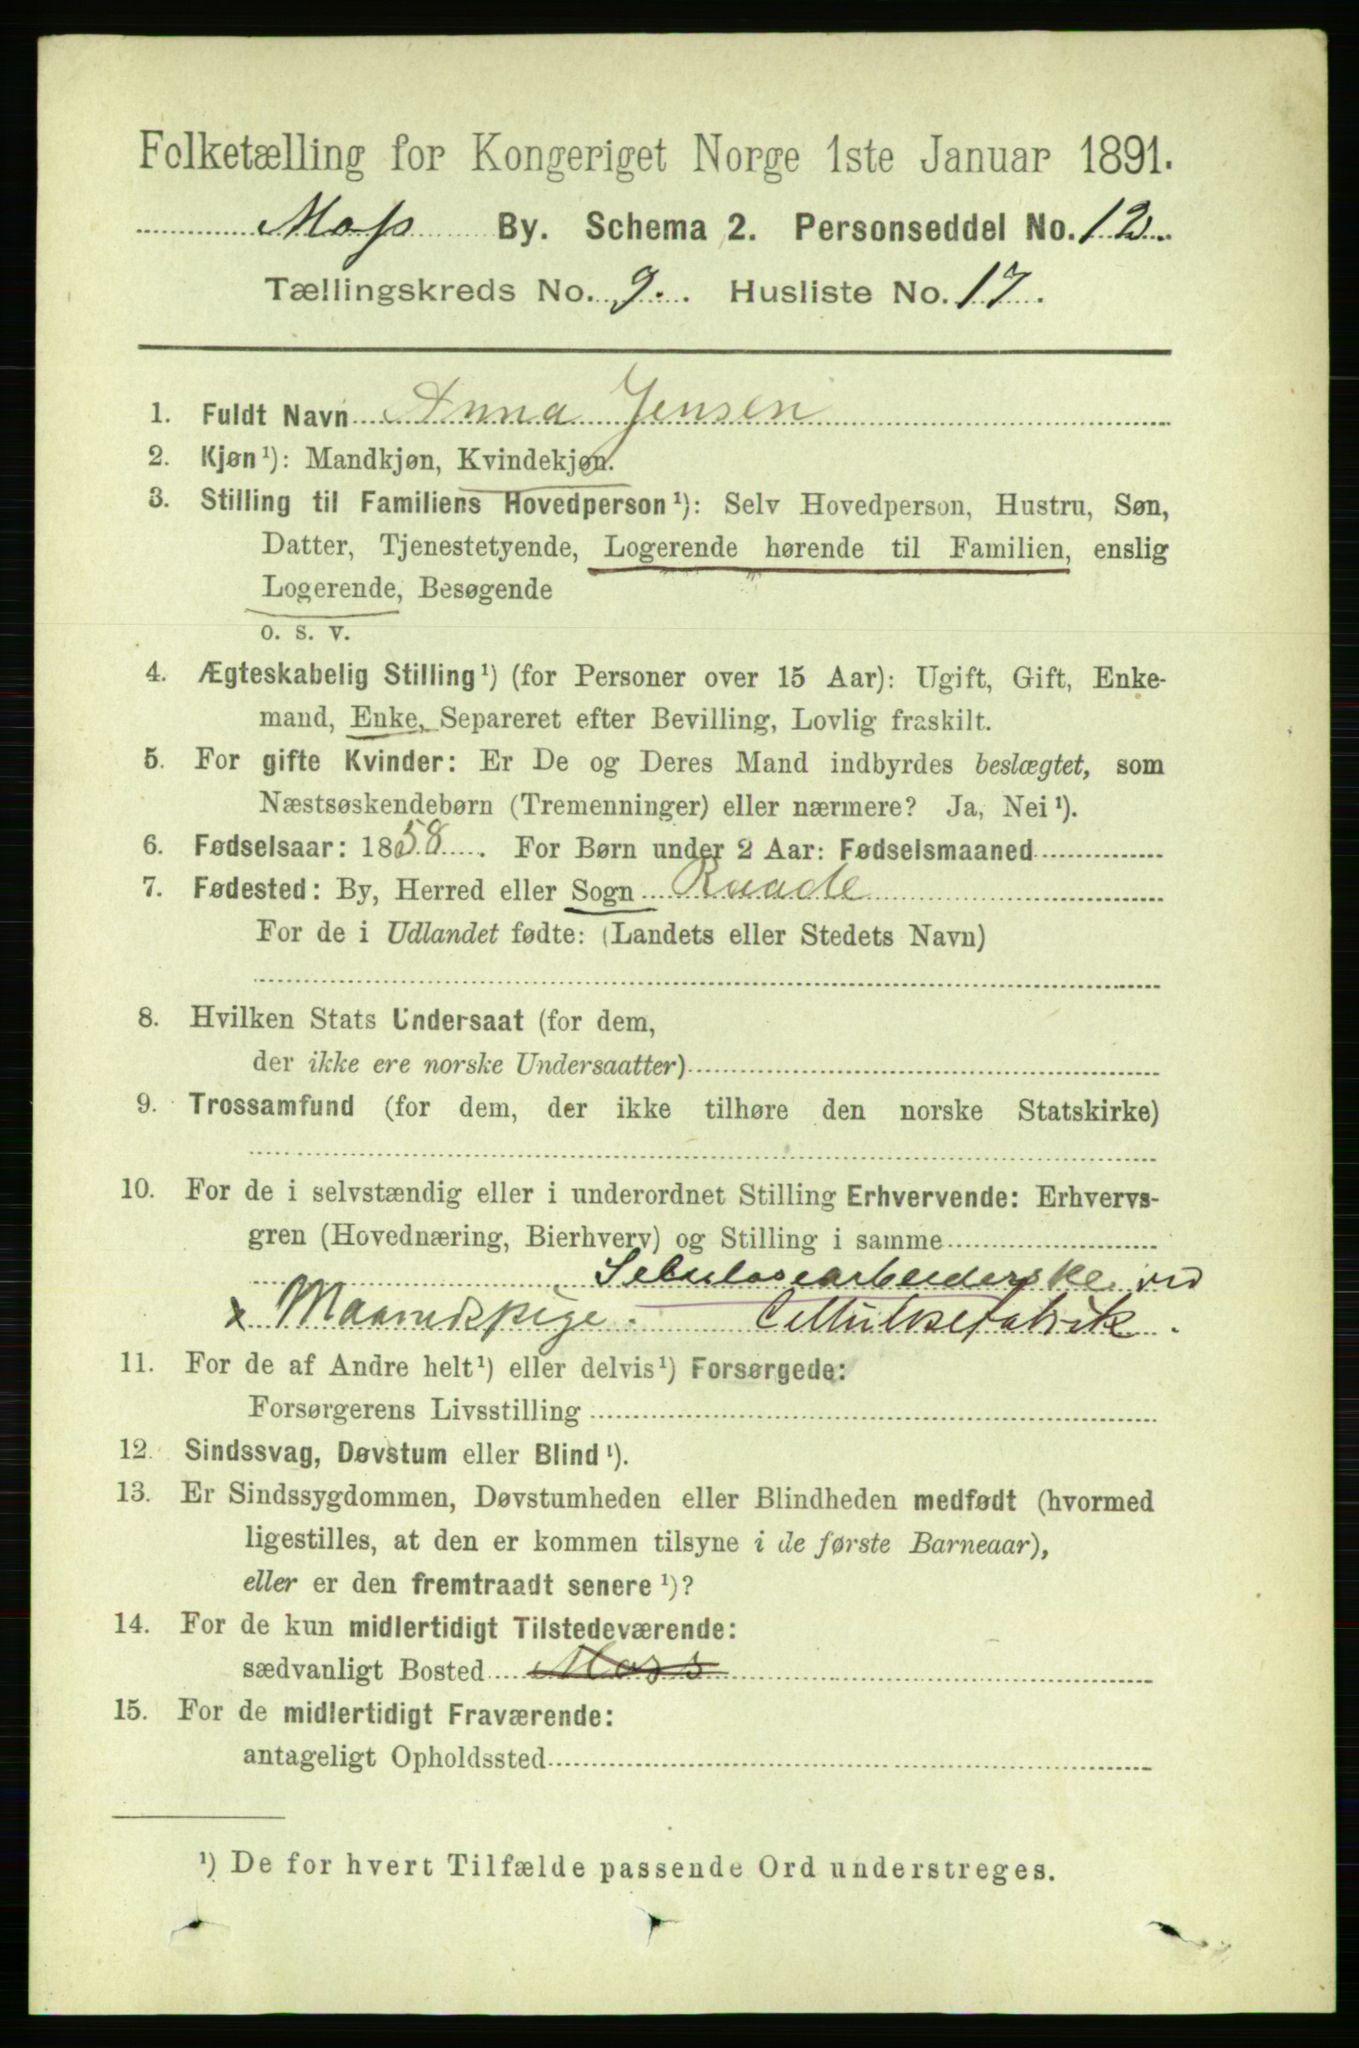 Folketælling for Kongeriget Norge 1ste Januar 1891.
Moss By. Schema 2. Personseddel No. 12.
Tællingskreds No. 9. Husliste No. 17.
1. Fuldt Navn Anna Jensen
2. Kjøn¹): Mandkjøn, Kvindekjøn.
3. Stilling til Familiens Hovedperson¹): Selv Hovedperson, Hustru, Søn,
Datter, Tjenestetyende, Logerende hørende til Familien, enslig
Logerende, Besøgende
o. s. v.
4. Ægteskabelig Stilling¹) (for Personer over 15 Aar): Ugift, Gift, Enke-
mand, Enke, Separeret efter Bevilling, Lovlig fraskilt.
5. For gifte Kvinder: Er De og Deres Mand indbyrdes beslægtet, som
Næstsøskendebørn (Tremenninger) eller nærmere? Ja, Nei¹).
6. Fødselsaar: 1858. For Børn under 2 Aar: Fødselsmaaned
7. Fødested: By, Herred eller Sogn Raade
For de i Udlandet fødte: (Landets eller Stedets Navn)
8. Hvilken Stats Undersaat (for dem,
der ikke ere norske Undersaatter)
9. Trossamfund (for dem, der ikke tilhøre den norske Statskirke)
10. For de i selvstændig eller i underordnet Stilling Erhvervende: Erhvervs-
gren (Hovednæring, Bierhverv) og Stilling i samme
Selulosearbeiderske ved
x Maanedspige. Cellulosefabrik.
11. For de af Andre helt¹) eller delvis¹) Forsørgede:
Forsørgerens Livsstilling
12. Sindssvag, Døvstum eller Blind¹).
13. Er Sindssygdommen, Døvstumheden eller Blindheden medfødt (hvormed
ligestilles, at den er kommen tilsyne i de første Barneaar),
eller er den fremtraadt senere¹)?
14. For de kun midlertidigt Tilstedeværende:
sædvanligt Bosted Moss
15. For de midlertidigt Fraværende:
antageligt Opholdssted
¹) De for hvert Tilfælde passende Ord understreges.